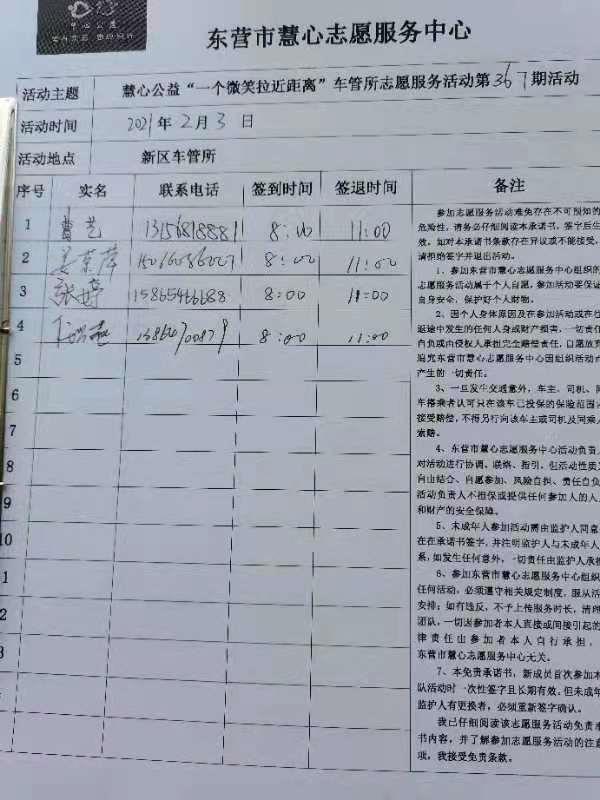 东营市慧心志愿服务中心
活动主题 慧心公益“一个微笑拉近距离”车管所志愿服务活动第367期活动
活动时间 2021年2月3日
活动地点 新区车管所
序号 实名 联系电话 签到时间 签退时间 备注
1 8:00 11:00
2 8:00 11:00
3 张婷 15865466688 8:00 11:00
4 8:00 11:00
5
6
7
8
9
10
1
2
3
参加志愿服务活动难免存在不可预知的
危险性，请务必仔细阅读本承诺书，签字后生
效，如对本承诺书条款存在异议或不能接受，
请拒绝签字并退出活动。
1、参加东营市慧心志愿服务中心组织的
志愿服务活动属于个人自愿，参加活动要保证
自身安全，保护好个人财物。
2、因个人身体原因及在参加活动或在往
返途中发生的任何人身或财产损害，一切责任
自负或由侵权人承担完全赔偿责任，自愿放弃
追究东营市慧心志愿服务中心因组织活动
产生的一切责任。
3、一旦发生交通意外，车主、司机、同
车搭乘者认可只在该车已投保的保险范围内
接受赔偿，不得另行向该车主或司机及同乘人
索赔。
4、东营市慧心志愿服务中心活动负责人
对活动进行协调、联络、指引，但活动性质
自由结合、自愿参加、风险自担、责任自负
活动负责人不担保或提供任何参加人的人
和财产的安全保障。
5、未成年人参加活动需由监护人同意
在在承诺书签字，并注明监护人与未成年人
系，如发生任何意外，一切责任由监护人承担
6、参加东营市慧心志愿服务中心组织
任何活动，必须遵守相关规定制度，服从活
安排；如有违反，不予上传服务时长，清理
团队，一切因参加者本人直接或间接引起的
律责任由参加者本人自行承担，
东营市慧心志愿服务中心无关。
7、本免责承诺书，新成员首次参加本
队活动时一次性签字且长期有效。但未成年
监护人有更换者，必须重新签字确认。
我已仔细阅读该志愿服务活动免责承
书内容，并了解参加志愿服务活动的注意
项，我接受免责条款。